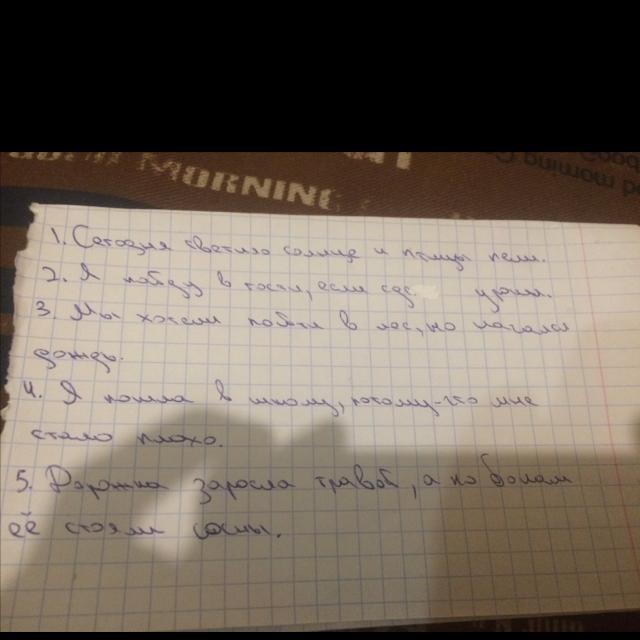 MORNING
1. Сегодня светило солнце и птицы пели.
2. Я пойду в гости, если сд уроки.
3. Мы хотели пойти в лес, но начался
дождь.
4. Я пошла в школу, потому-что мне
стало плохо.
5. Дорожка заросла травой, а по бокам
её стояли сосны.